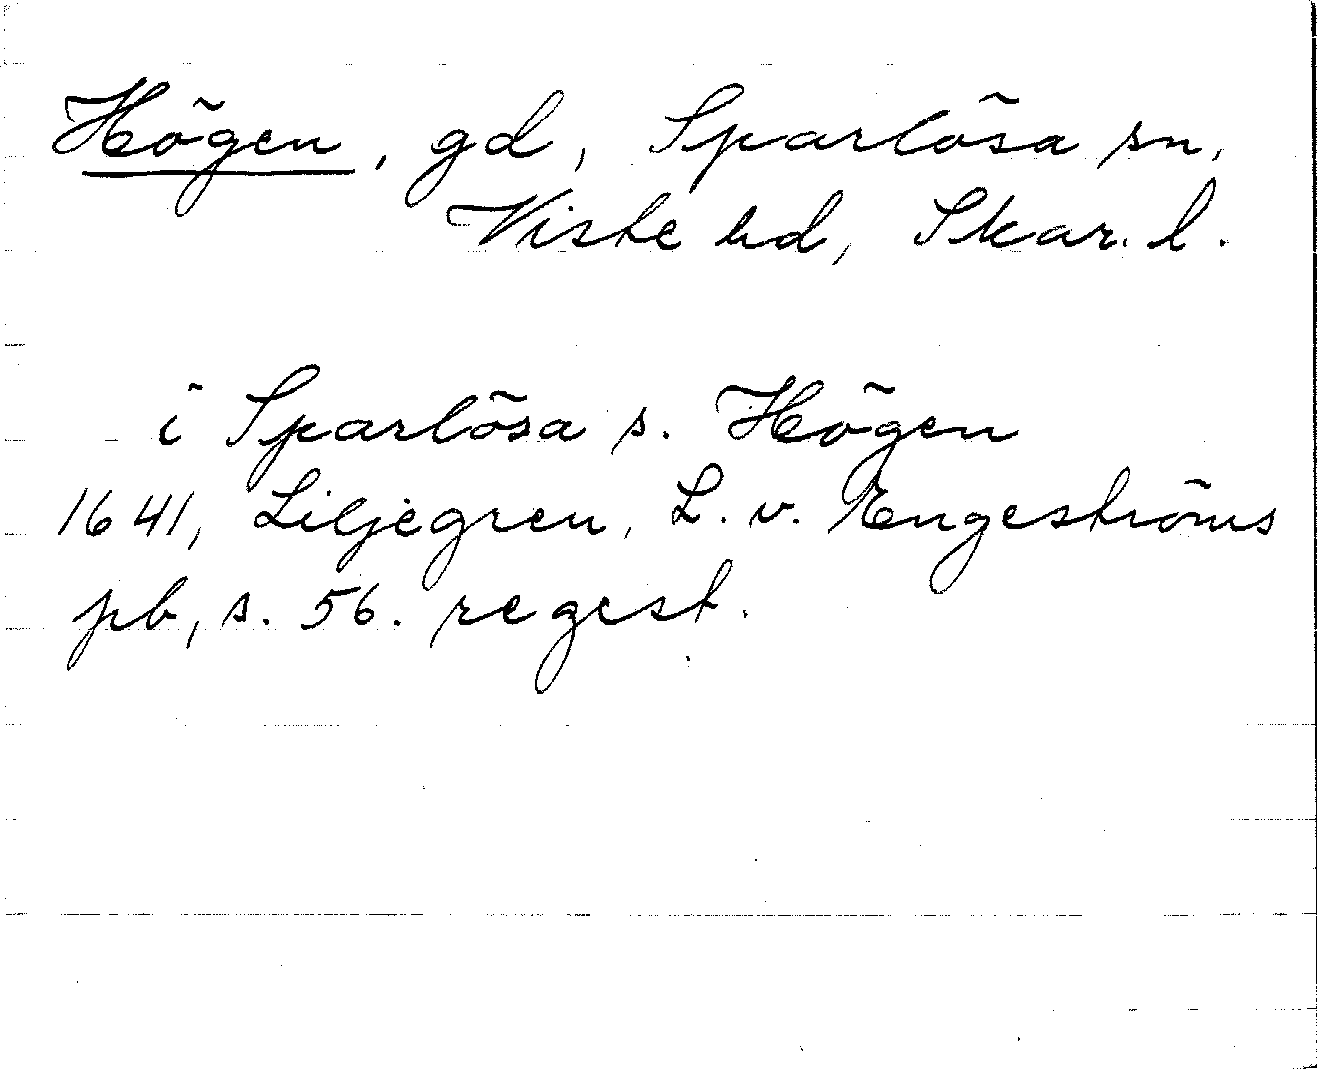 Högen, gd, Sparlösa sn,
Viste hd, Skar. l.
i Sparlösa s. Högen
1641, Liljegren, L. v. Engeströms
pb, s. 56. regest.